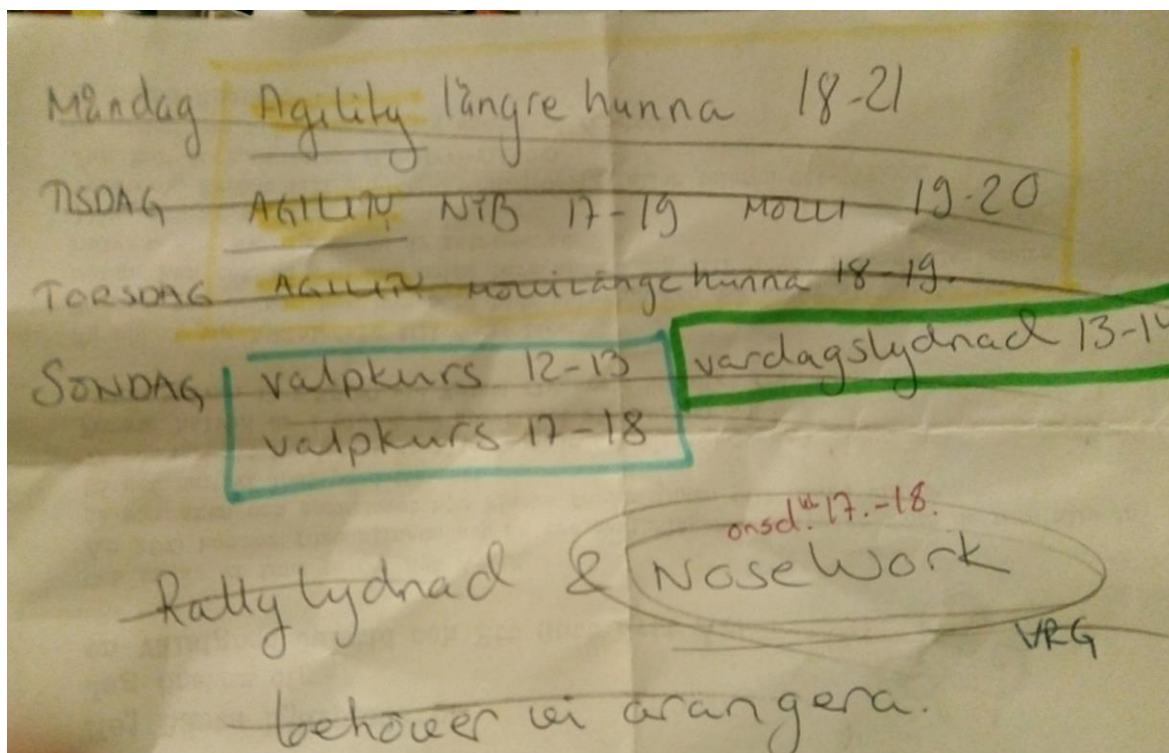 Måndag Agility längre hunna 18-21
TISDAG AGILITY NYB 17-19 MOLLI 19-20
TORSDAG AGILITY MOLLI långe hunna 18-19.
SÖNDAG valpkurs 12-13 vardagslydnad 13-14
valpkurs 17-18
onsd. kl 17.-18.
Rally lydnad & NoseWork
VRG
behöver vi arangera.